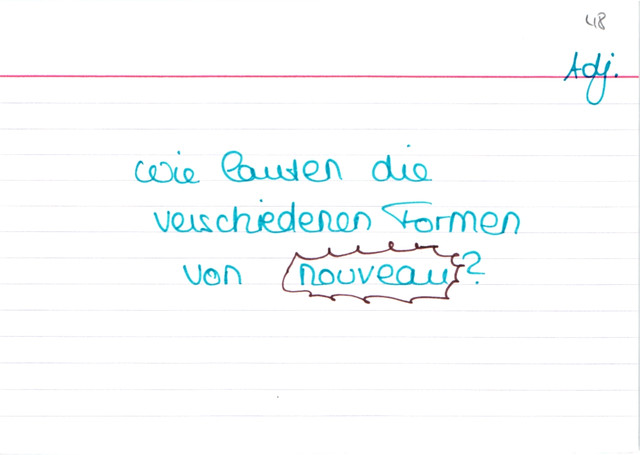 48
Adj.
Wie lauten die
verschiedenen Formen
von nouveau?